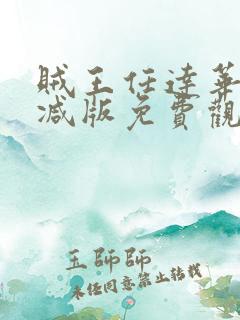 贼王任達華
减版免費觀
王師師
未经同意禁止转载